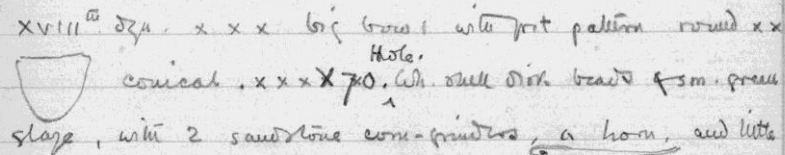 XVIIIth dyn. x x x big bowl with pot pattern round x x
Hole.
conical. x x x X 70. Wh. shell disk beads & sm. green
glaze, with 2 sandstone corn-grinders, a horn, and little